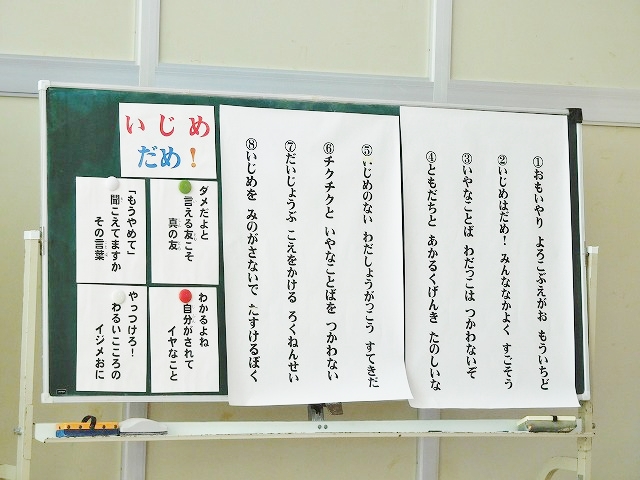 ①おもいやり よろこぶえがお もういちど
②いじめはだめ！ みんななかよく すごそう
③いやなことば わだっこは つかわないぞ
④ともだちと あかるくげんき たのしいな
⑤いじめのない わだしょうがっこう すてきだ
⑥チクチクと いやなことばを つかわない
⑦だいじょうぶ こえをかける ろくねんせい
⑧いじめを みのがさないで たすけるぼく
いじめ
だめ！
ダメだよと
言える友こそ
真の友
「もうやめて」
聞こえてますか
その言葉
わかるよね
自分がされて
イヤなこと
やっつけろ！
わるいこころの
イジメおに